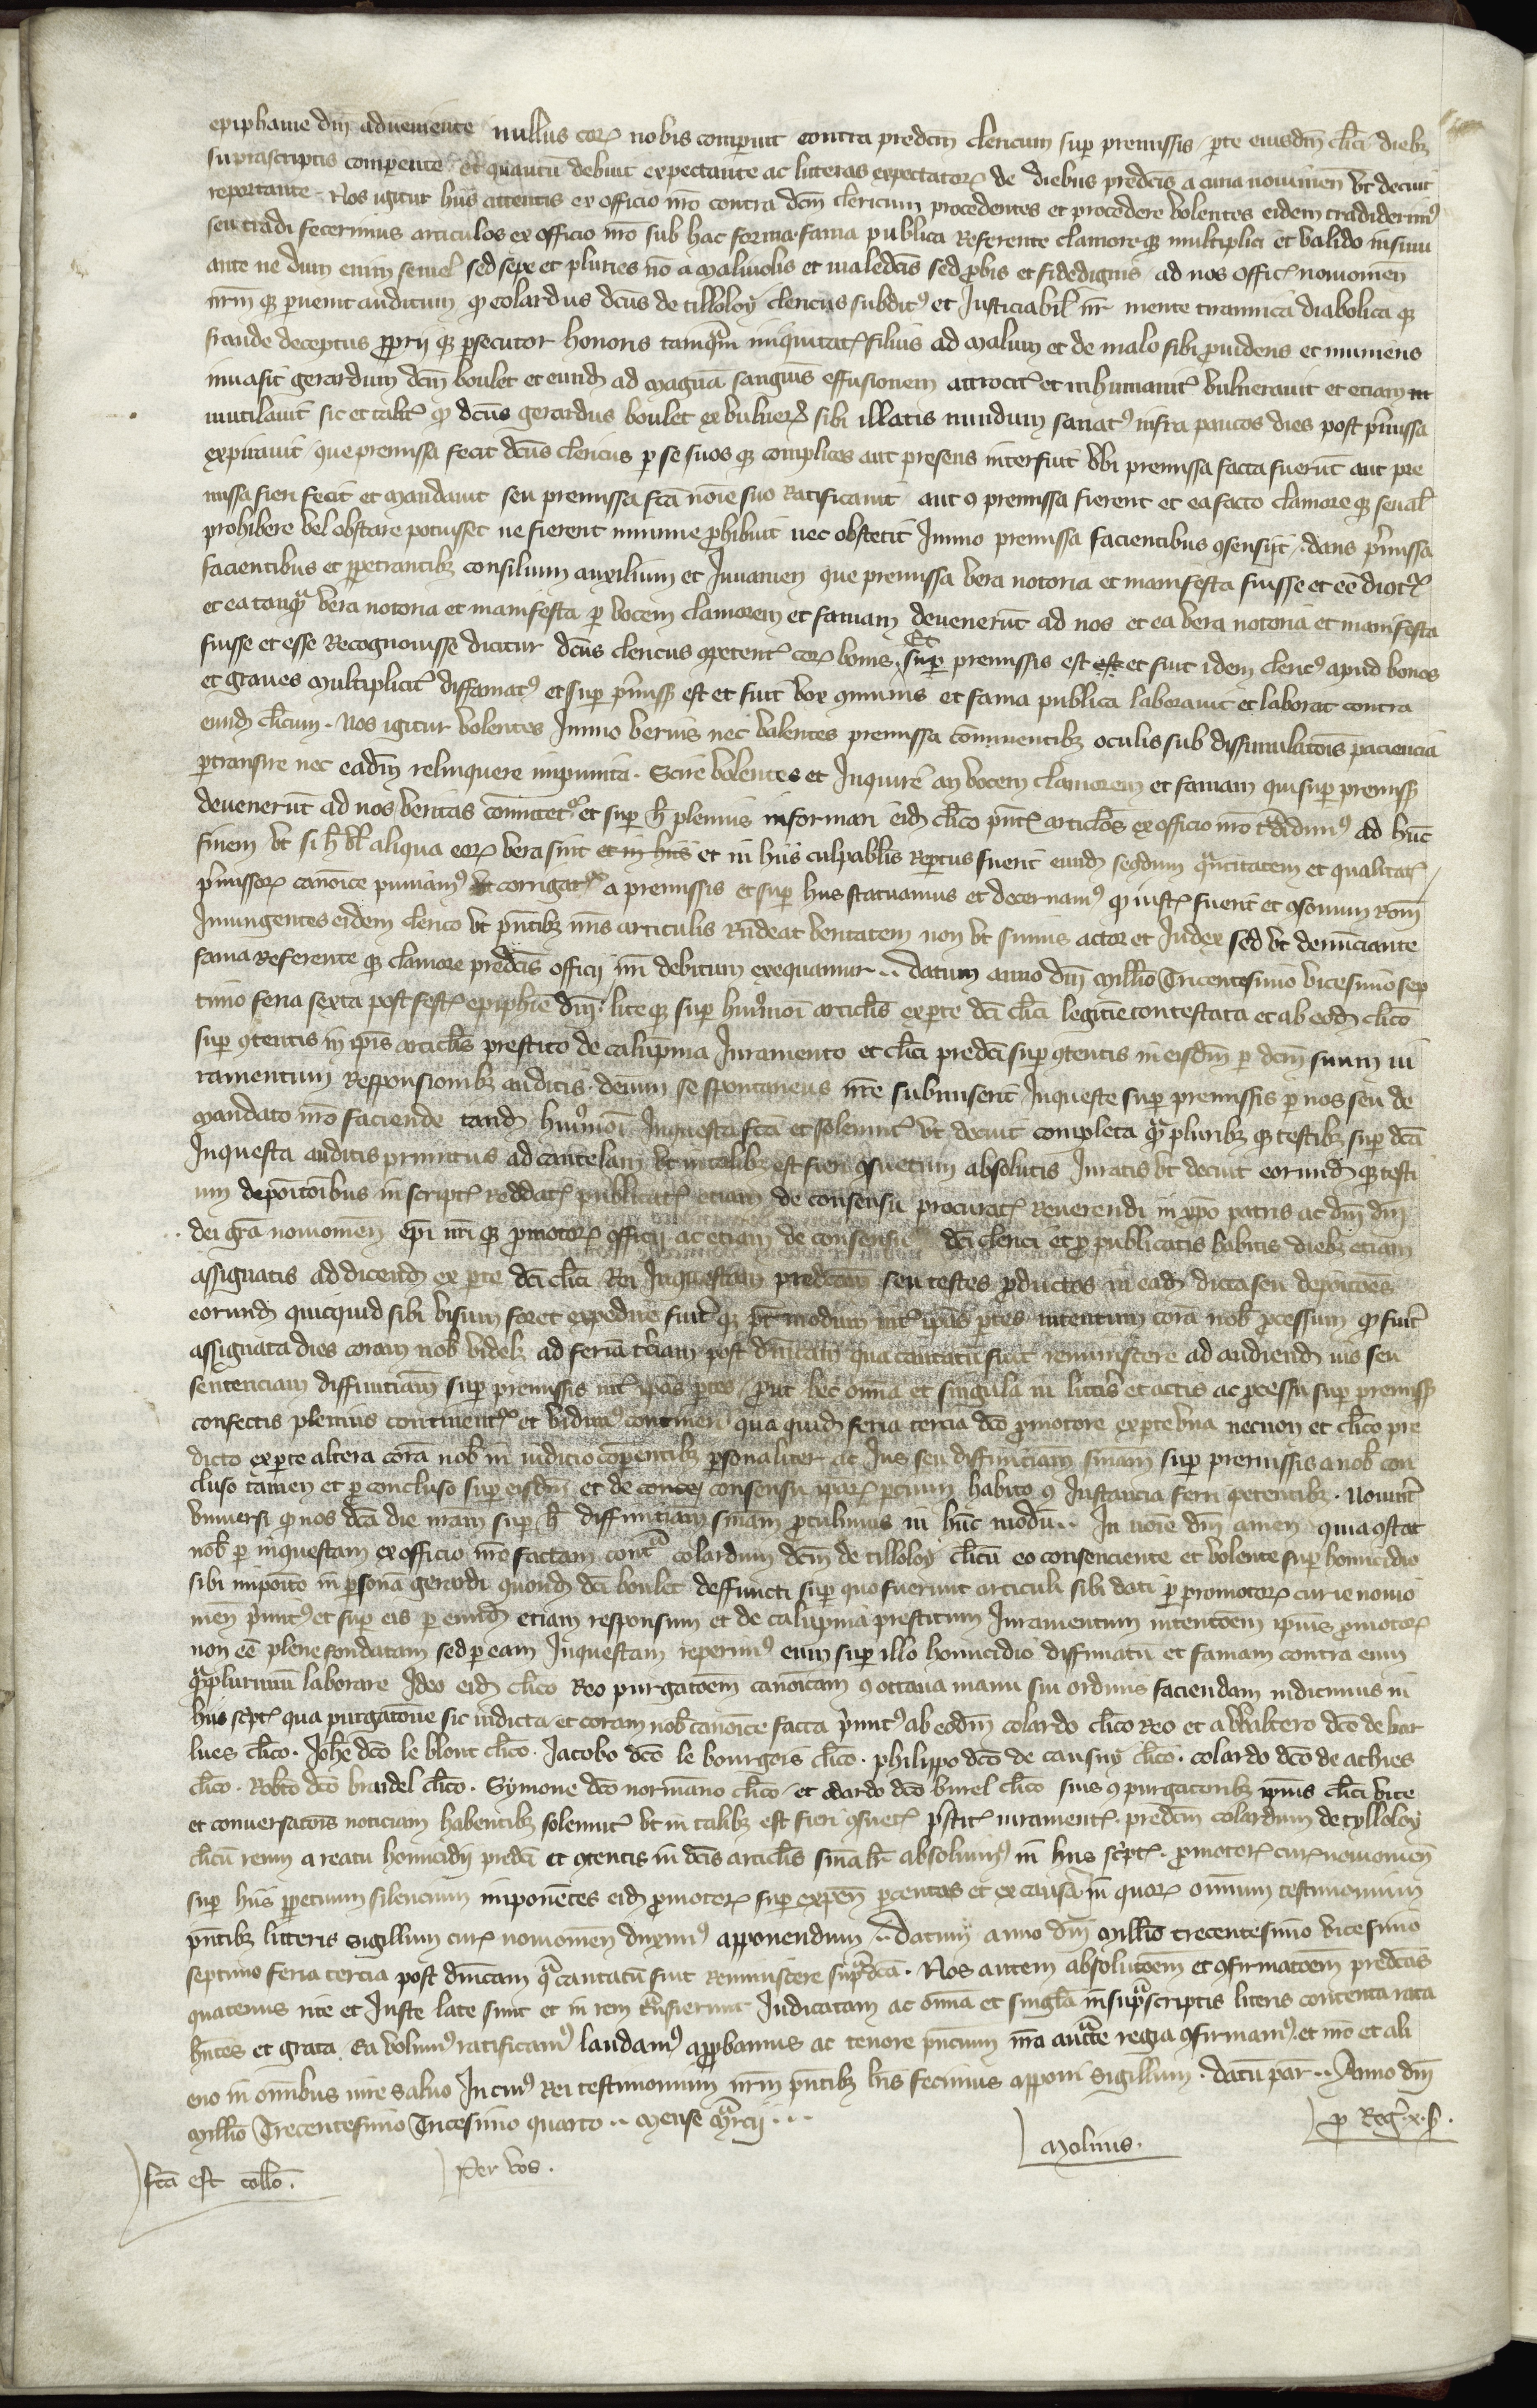 epiphanie dm̄ adueniente nullus corꝫ nobis comperuit contra predcm̄ clericum sup premissis / pte eiusdm̄ clīci diebꝫ
suprascriptis comparente et quantū debuit expectante ac litteras expectatorꝫ de diebus predcīs a curia nouiomen̄ vt decuit
reportante . Nos igitur hiis attentis ex officio nr̄o contra dcm̄ clericum procedentes et procedere volentes eidem tradiderimꝰ
seu tradi fecerimus articulos ex officio nr̄o sub hac forma . fama publica referente clamoreqꝫ multiplici et valido insinu
ante ne dum enim semel sed sepe et pluries nō a maliuolis et maledcīs sed probis et fidedignis ad nos officꝫ nouiomen̄
nr̄m qꝫ peruenit auditum qꝫ colardus dcūs de tilloloy clericus subditꝰ et Justiciabil nr̄ mente tirannica diabolica qꝫ
fraude deceptus proprij qꝫ psecutor honoris tamqᵃm iniquitatꝭ filius ad malum et de malo sibi prouidens et muniens
inuasit gerardum dcm̄ boulet et eundꝫ ad magnā sanguis effusionem attrocitꝰ et inhumanitꝰ vulnerauit et etiam m
mutilauit sic et talitꝰ qꝫ dcūs gerardus boulet ex vulnerꝫ sibi illatis nundum sanatꝰ infra paucos dies post p̄missa
expirauit que premissa fecit dcūs clericus p se suos qꝫ complices aut presens interfuit vbi premissa facta fuerūt aut pre
missa fieri fecit et mandauit seu premissa fcā noīe suo ratificauit aut ꝯ premissa fierent et ea facto clamore qꝫ seu al
prohibere vel obstare potuisset ne fierent minime prohibuit nec obstetit Jmmo premissa facientibus ꝯsensijt . dans p̄missa
facientibus et ppetrantibꝫ consilium auxilium et Juuamen que premissa vera notoria et manifesta fuisse et eē dicitꝰ
et ea tanqᵃ vera notoria et manifesta p vocem clamorem et famam deuenerūt ad nos et ea vera notoria et manifesta
fuisse et esse recognouisse dicitur dcūs clericus ꝯpetentꝰ corꝫ bonis . Et sup premissis est est et fuit idem clericꝰ apud bonos
et graues multiplicitꝰ diffamatꝰ et sup p̄missꝭ est et fuit vox ꝯmunis et fama publica laborauit et laborat contra
eundꝫ clīcum . Nos igitur volentes Jmmo verius nec valentes premissa conniuentibꝫ oculis sub dissimulatoīs paciencia
ptransire nec eadm̄ relinquere impunita . Scire volentes et Jnquirē an vocem clamorem et famam qui sup premissꝭ
deuenerūt ad nos veritas comitetꝰ et sup h̄ plenius informari eidꝫ clīco pn̄tꝭ articlōs ex officio nr̄o tᵃdidimꝰ ad hūc
finem vt si h̄ vl̄ aliqua eorꝫ vera sint et in hiis et in hiis culpablīs reptus fuerit eundꝫ secdum qᵃntitatem et qualitatꝭ
p̄missorꝫ canoīce puniamꝰ vt corrigatꝰ a premissis et sup hiis statuamus et decernamꝰ qꝫ iustꝫ fuerit et ꝯsonum rom̄
Jniungentes eidem clerico vt pn̄tibꝫ nr̄is articulis rn̄deat veritatem non vt simus actor et Judex sed vt denūciante
fama referente qꝫ clamore predcīs officij nr̄i debitum exequamur .. datum anno dm̄ millīo Tricentesimo vicesimo sep
timo feria sexta post festꝫ epiphīe dm̄ . lite qꝫ sup huiꝰmoī articlīs ex pte dcī clīci legitīe contestata et ab eodꝫ clīco
sup ꝯtentis in ipīs articlīs prestito de calūpnia Juramento et clīci predcī sup ꝯtentis in eisdm̄ p dcm̄ suum iu
ramentum responsionibꝫ auditis . demum se spontaneus nr̄e submiserit Jnqueste sup premissis p nos seu de
mandato nr̄o faciende tandꝫ huiꝰmoī Jnquesta fcā et solennitꝰ vt decuit completa qᵃpluribꝫ qꝫ testibꝫ sup dcā
Jnquesta auditis primitus ad cautelam vt in talibꝫ est fieri ꝯsuetum absolutis Juratis vt decuit eorundꝫ qꝫ testi
um depoītoībus in scriptꝭ reddatꝭ publicatꝭ etiam de consensu procuratꝭ Reuerendi in xpō patris ac dm̄ dm̄
dei grā nouiomen̄ epī nr̄i qꝫ promotorꝭ officij ac etiam de consensu dcī clerici et pro publicatis habitis diebꝫ etiam
assignatis ad dicendꝫ ex pte dcī clīci Rei Jnquestam predcām seu testes productos in eadꝫ dicta seu depoītoēs
eorundꝫ quicquid sibi visum foret expedire fuitꝰ qꝫ p̄t modum intꝰ ipās ptes intentum corā nob̄ processum qꝫ fuit
assignata dies coram nob̄ videlꝫ ad feriā tciam post dn̄icam qua cantatū fuit reminiscere ad audiendꝫ ius seu
sentenciam diffinitiām sup premissis intꝰ ipās ptes / prout hec om̄ia et singula in littīs et actis ac processu sup premissꝭ
confectis plenius continentꝰ et vidimꝰ contineri qua quidꝫ feria tercia dcō promotore ex pte vna necnon et clīco pre
dicto ex pte altera corā nob̄ in iudicio comparentibꝫ psonaliter ac Jus seu diffinitiām sniām sup premissis a nob̄ con
cluso tamen et pro concluso sup eisdm̄ et de conce consensu ipārꝫ ptium habito ꝯ Justancia ferri petentibꝫ . Nouint̄
vniuersi qꝫ nos dcā die nr̄am sup h̄ diffinitiām sniām protulimus in hūc modū .. In noīe dm̄ amen quia ꝯstat
nob̄ p inquestam ex officio nr̄o factam contᵃ colardum dcm̄ de tilloloy clīcū eo consenciente et volente sup homicidio
sibi impoīto in psonā gerardi quondꝫ dcī boulet deffuncti sup quo fuerunt articuli sibi dati p promotorꝫ curie nouio
men̄ p̄initꝰ et sup eis p eundꝫ etiam responsum et de calūpnia prestitum Juramentum intentoēm ipīus promotorꝭ
non eē plene fondatam sed p eam Jnquestam reperimꝰ eum sup illo homicidio diffamatū et famam contra eum
qᵃplurimū laborare Jdeo eidꝫ clīco Reo purgatoēm canoīcam ꝯ octaua manu sui ordinis faciendam indicimus in
hiis scptꝭ qua purgatoīne sic indicta et coram nob̄ canoīce facta p̄initꝰ ab eodm̄ colardo clīco reo et a waltero dcō de bar
lues clīco . Joh̄e dcō le blont clīco . Jacobo dcō le bourgois clīco . philippo dcō de causny clīco . colardo dcō de athies
clīco . Rob̄to dcō bridel clīco . Symone dcō normāno clīco / et odardo dcō burel clīco suis ꝯpurgatoribꝫ ipīus clīci vite
et conuersatoīs noticiam habentibꝫ solennitꝰ vt in talibꝫ est fieri ꝯsuetꝫ p̄stitꝭ iuramentꝭ . predcm̄ colardum de tylloloy
clīcū reum a reatu homicidij predcī et ꝯtentis in dcīs articlīs sniālr̄ absoluimꝰ in hiis scptꝭ . promotorꝭ curꝫ nouiomen̄
sup hiis ppetuum silencium imponētes eidꝫ promotorꝭ sup expen̄ petentes et ex causā in quorꝫ omnium testimonium
pn̄tibꝫ litteris sigillum curꝫ nouiomen̄ duximꝰ apponendum .. Datum anno dm̄ millīo trecentesimo vicesimo
septimo feria tercia post dn̄icam qᵃ cantatū fuit reminiscere supᵃdcā . Nos autem absolutoēm et ꝯfirmatoēm predcās
quatenus rite et Juste late sunt et in rem tᵃnsierunt Judicatam ac om̄ia et singlā in supᵃscriptis literis contenta rata
hn̄tes et grata . Ea volumꝰ ratificamꝰ laudamꝰ approbamus ac tenore pn̄cium nr̄a auctᵃte regia ꝯfirmamꝰ . et nr̄o et ali
eno in omībus iure saluo Jn cuiꝰ Rei testimonium nr̄m pn̄tibꝫ lr̄is fecimus apponi Sigillum . datū par̄ .. Anno dm̄
Millīo Trecentesimo Tricesimo quarto .. Mense Mᵃrcij ...
p Reg̃ . x . ß .
Molinis .
Per vos .
fcā est collō .